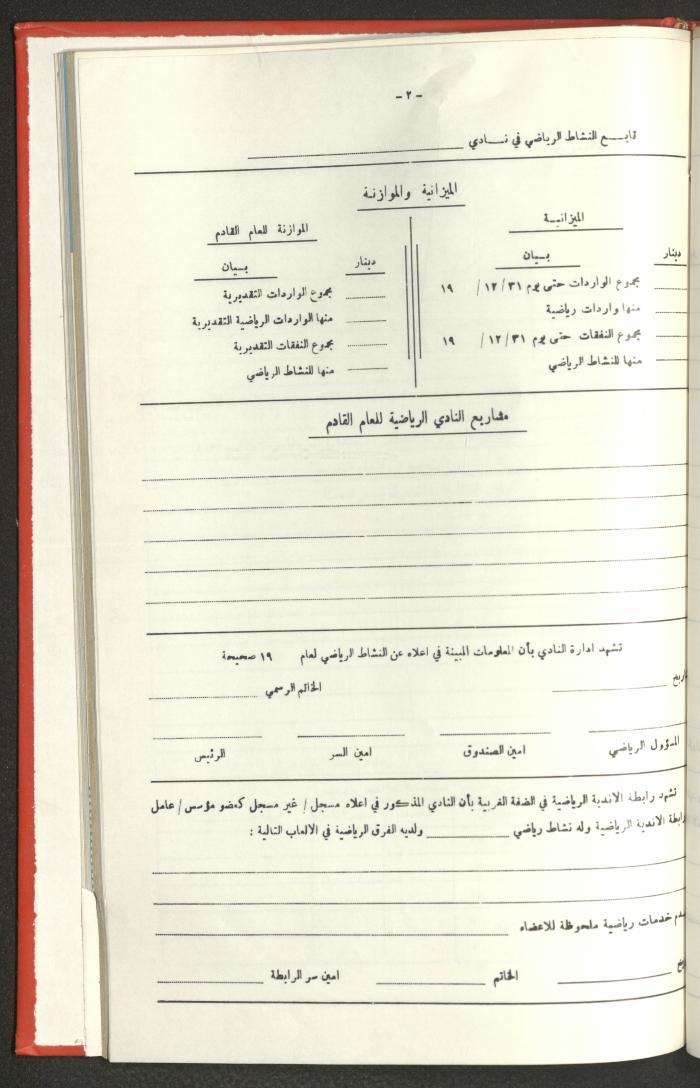 - ٢ -
تابـــع النشاط الرياضي في نـــادي
الميزانية والموازنـة
الميزانيــة
دينار
بـيان
مجموع الواردات حتى يوم ٣١/ ١٢/ ١٩
منها واردات رياضية
مجموع النفقات حتى يوم ٣١/ ١٢/ ١٩
منها للنشاط الرياضي
الموازنة للعام القادم
دينار
بـيان
مجموع الواردات التقديرية
منها الواردات الرياضية التقديرية
مجموع النفقات التقديرية
منها للنشاط الرياضي
مشاريع النادي الرياضية للعام القادم
تشهد ادارة النادي بأن المعلومات المبينة في اعلاه عن النشاط الرياضي لعام ١٩ صحيحة
الخاتم الرسمي
المسؤول الرياضي امين الصندوق امين السر الرئيس
تشهد رابطة الاندية الرياضية في الضفة الغربية بأن النادي المذكور في اعلاه مسجل / غير مسجل كعضو مؤسس / عامل
الاندية الرياضية وله نشاط رياضي ولديه الفرق الرياضية في الالعاب التالية :
خدمات رياضية ملحوظة للاعضاء
الخاتم امين سر الرابطة